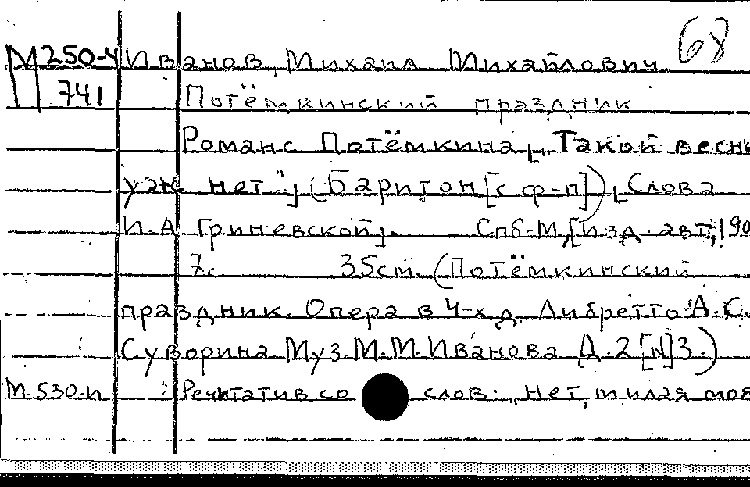 68
М250-4 Иванов, Михаил Михайлович
741 Потёмкинский праздник
Романс Потёмкина „Такой весны
уж нет", (Баритон [с ф-п]), [Слова
И.А. Гриневской]. Спб-М, [изд. авт], 190
7с. 35см. (Потёмкинский
праздник. Опера в 4-х д. Либретто А.С.
Суворина Муз. М.М. Иванова Д. 2 [N] 3.)
М 530-и Речитатив со слов: „Нет, милая моя